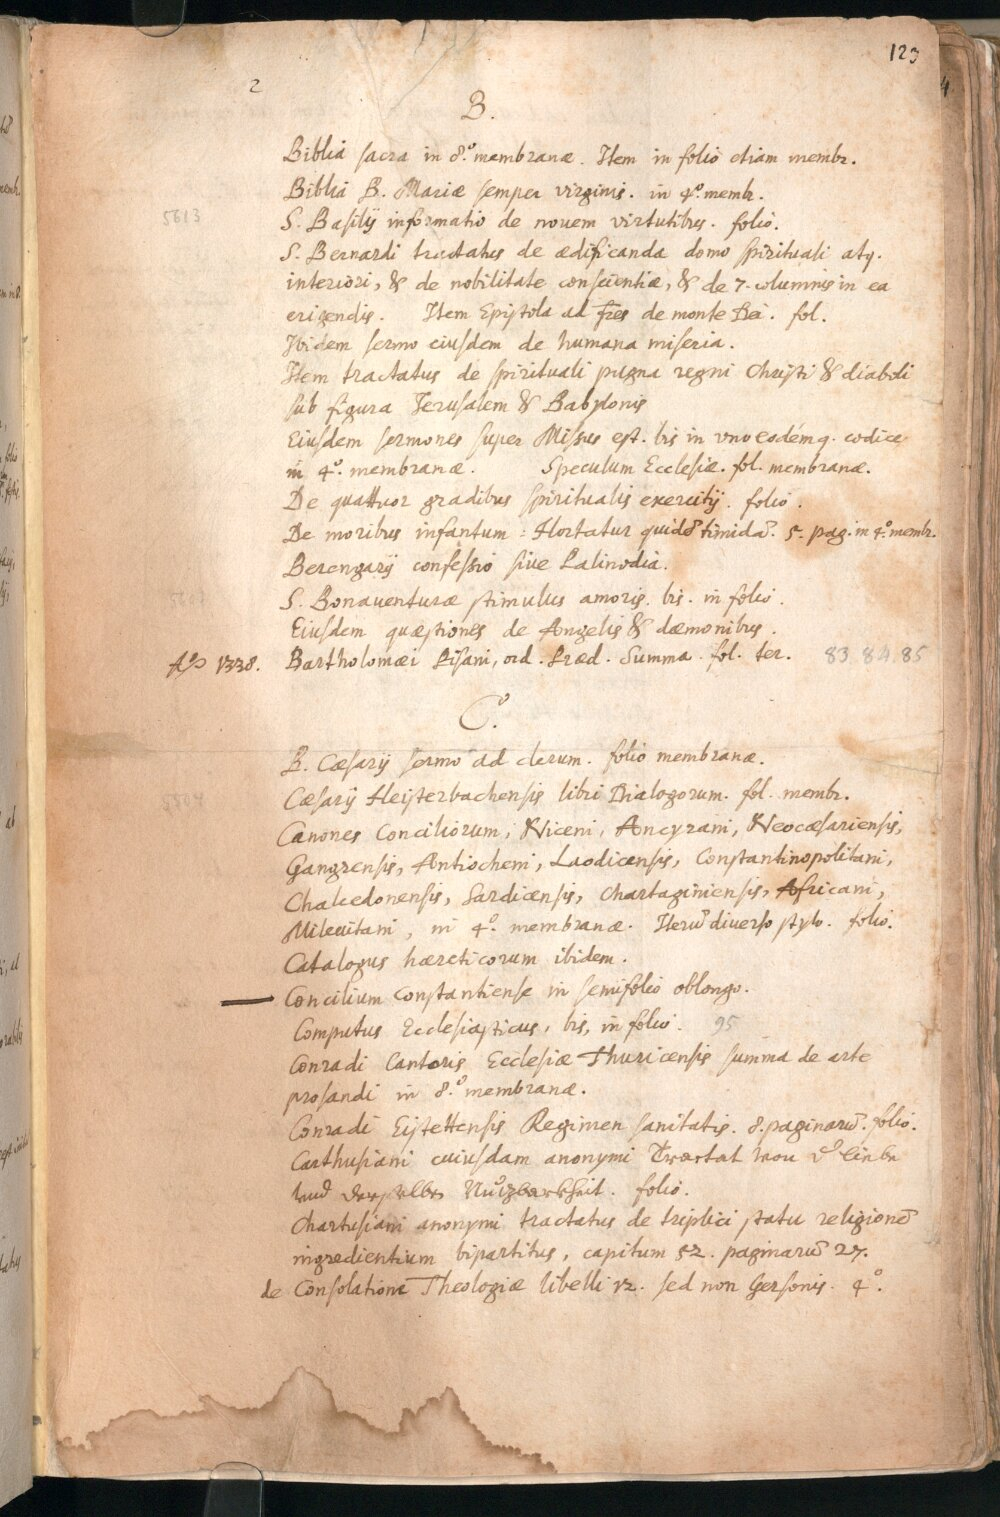 123
2
B.
Biblia sacra in 8.º membranæ. Item in folio etiam membr.
Biblia B. Mariæ semper virginis. in 4.º membr.
5613 S. Basilij informatio de novem virtutibus. folio.
S. Bernardi tractatus de ædificanda domo spirituali atq.
interiori, & de nobilitate conscientiæ, & de 7. columnis in ea
erigendis. Item Epistola ad fres de monte Dei. fol.
Ibidem sermo eiusdem de humana miseria.
Item tractatus de spirituali pugna regni Christi & diaboli
sub figura Jerusalem & Babylonis
Eiusdem sermones super Missus est. bis in uno eodémq. codice
in 4.º membranæ. Speculum Ecclesiæ. fol. membranæ.
De quattuor gradibus spiritualis exercitij. folio.
De moribus infantum: Hortatur quidẽ timidã. 5. pag. in 4.º membr.
Berengarij confessio sive Palinodia.
S. Bonaventuræ stimulus amoris. bis. in folio.
Eiusdem quæstiones de Angelis & dæmonibus.
Aº 1338. Bartholomæi Pisani, ord. Præd. Summa. fol. ter. 83 84 85
C.
B. Cæsarij sermo ad clerum. folio membranæ.
5504 Cæsarij Heisterbachensis libri Dialogorum. fol. membr.
Canones Conciliorum, Niceni, Ancyrani, Neocæsariensis,
Gangrensis, Antiocheni, Laodicensis, Constantinopolitani,
Chalcedonensis, Sardicensis, Chartaginiensis, Africani,
Milevitani, in 4.º membranæ. Iterũ diverso stylo. folio.
Catalogus hæreticorum ibidem.
Concilium Constantiense in semifolio oblongo.
Computus Ecclesiasticus, bis, in folio. 95
Conradi Cantoris Ecclesiæ Thuricensis summa de arte
prosandi in 8.º membranæ.
Conradi Eistettensis Regimen sanitatis. 8. paginarũ. folio.
Carthusiani cuiusdam anonymi Tractat von d liebe
vnd derselben Nutzbarkheit. folio.
Chartusiani anonymi tractatus de triplici statu religionẽ
ingredientium bipartitus, capitum 52. paginarũ 27.
de Consolatione Theologiæ libelli 12. sed non Gersonis. 4º.